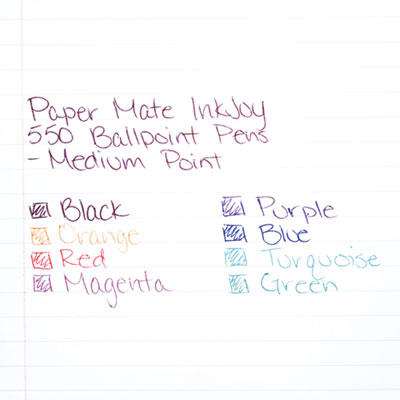 Paper Mate InkJoy
550 Ballpoint Pens
- Medium Point
Black
Orange
Red
Magenta
Purple
Blue
Turquoise
Green